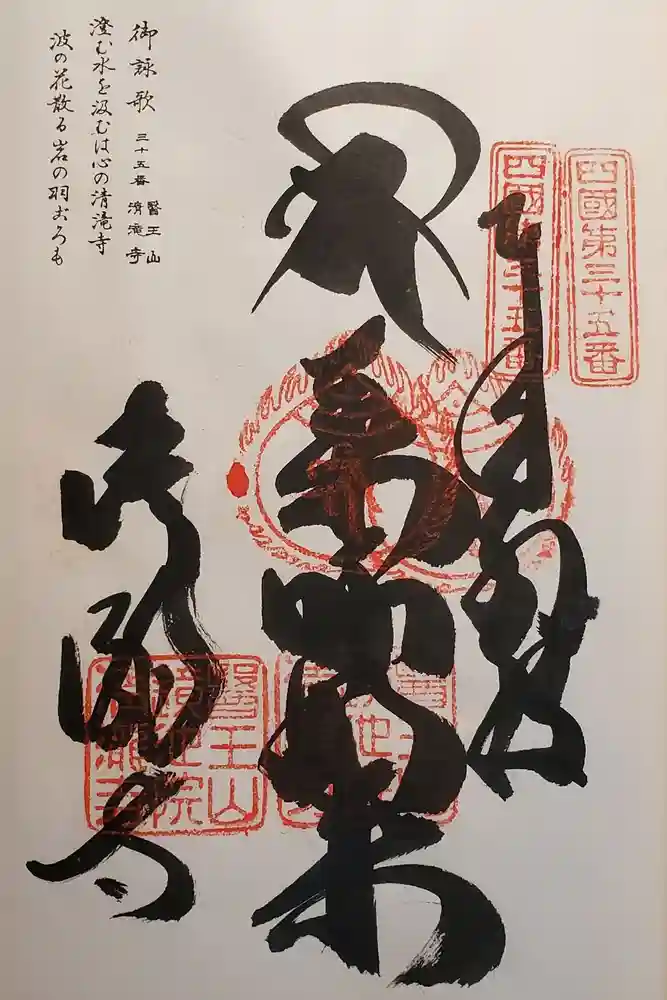 四國第三十五番
四國第三十五番
薬師如来
清瀧寺
醫王山
鏡池院
清瀧寺
御詠歌 三十五番 醫王山 清滝寺
澄む水を汲むは心の清滝寺
波の花散る岩の羽ごろも